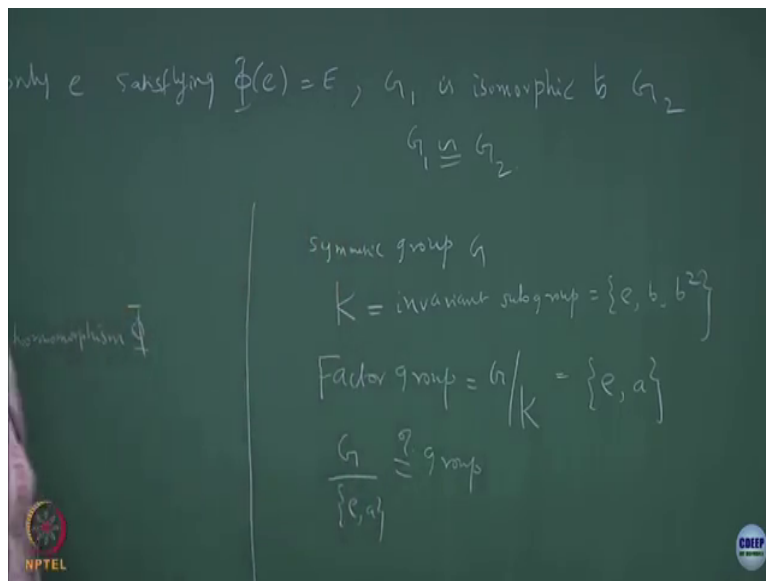 only e satisfying Φ(e) = E, G₁ is isomorphic to G₂
G₁ ≅ G₂
symmetric group G
K = invariant subgroup = {e, b, b²}
homomorphism Φ
Factor group = G/K = {e, a}
G/{e,a} ≟ group
NPTEL
CDEEP
IIT BOMBAY